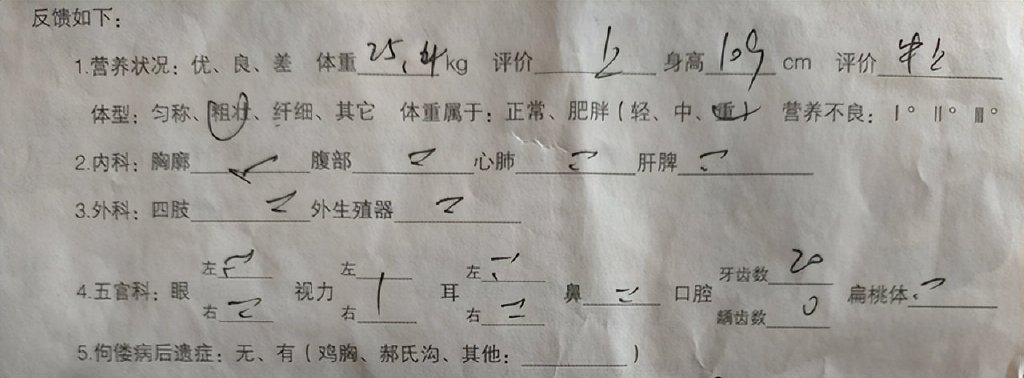 反馈如下：
1.营养状况：优、良、差 体重 25.4 kg 评价 上 身高 109 cm 评价 中上
体型：匀称、粗壮、纤细、其它 体重属于：正常、肥胖（轻、中、重） 营养不良：Ⅰ° Ⅱ° Ⅲ°
2.内科：胸廓 ✓ 腹部 心肺 肝脾
3.外科：四肢 外生殖器
4.五官科：眼 左 右 视力 左 右 耳 左 右 鼻 口腔 牙齿数 20 龋齿数 0 扁桃体
5.佝偻病后遗症：无、有（鸡胸、郝氏沟、其他： ）